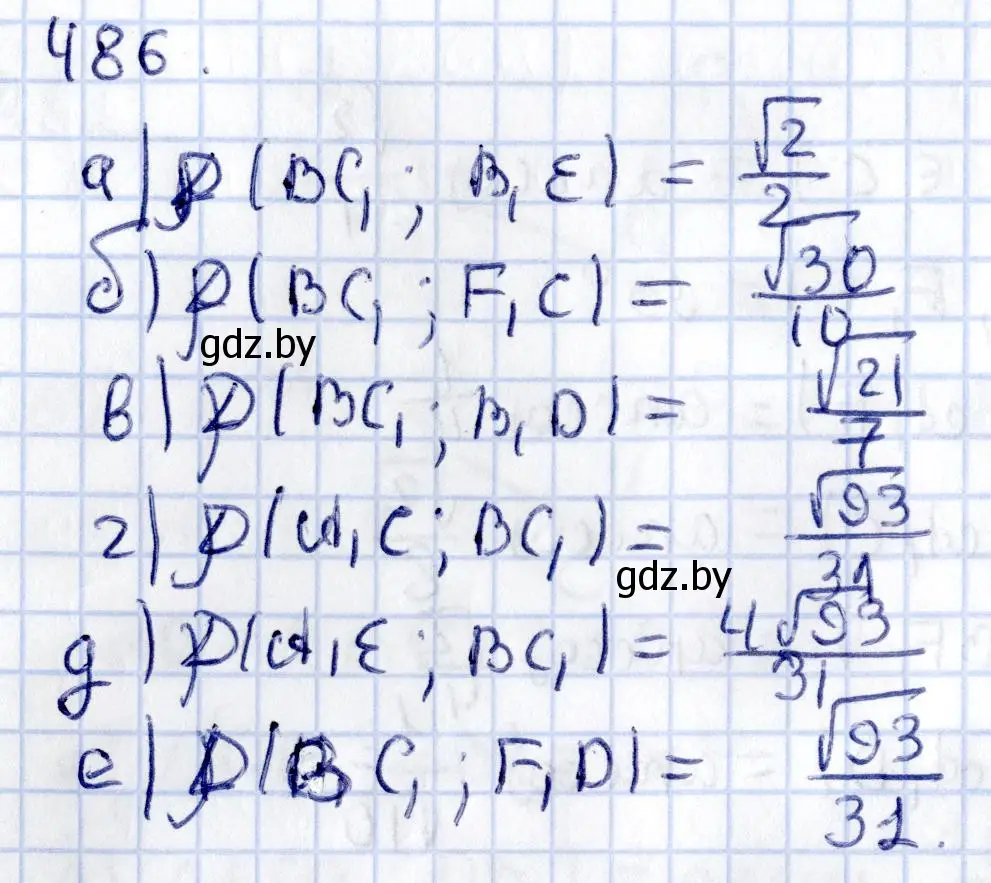 486.
а) ρ(BC₁; B₁E) = √2/2
б) ρ(BC₁; F₁C) = √30/10
gdz.by
в) ρ(BC₁; B₁D) = √21/7
г) ρ(A₁C; BC₁) = √93/31
gdz.by
д) ρ(A₁E; BC₁) = 4√93/31
е) ρ(BC₁; F₁D) = √93/31.